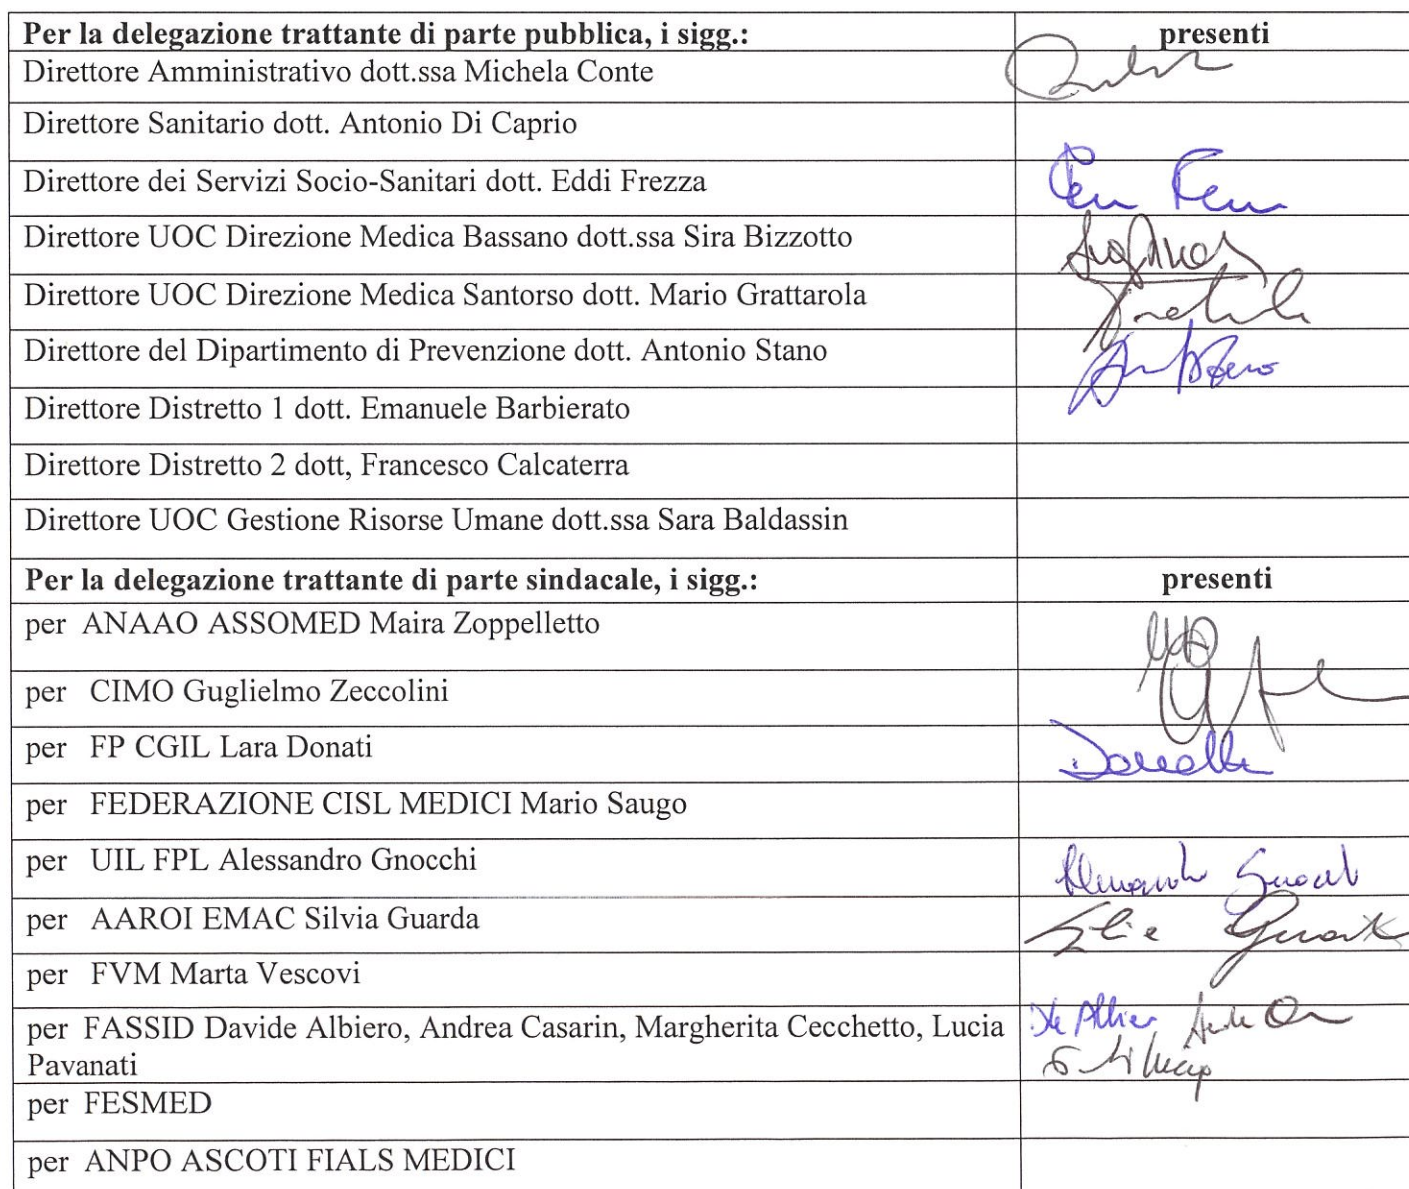 Per la delegazione trattante di parte pubblica, i sigg.: presenti
Direttore Amministrativo dott.ssa Michela Conte
Direttore Sanitario dott. Antonio Di Caprio
Direttore dei Servizi Socio-Sanitari dott. Eddi Frezza
Direttore UOC Direzione Medica Bassano dott.ssa Sira Bizzotto
Direttore UOC Direzione Medica Santorso dott. Mario Grattarola
Direttore del Dipartimento di Prevenzione dott. Antonio Stano
Direttore Distretto 1 dott. Emanuele Barbierato
Direttore Distretto 2 dott, Francesco Calcaterra
Direttore UOC Gestione Risorse Umane dott.ssa Sara Baldassin
Per la delegazione trattante di parte sindacale, i sigg.: presenti
per ANAAO ASSOMED Maira Zoppelletto
per CIMO Guglielmo Zeccolini
per FP CGIL Lara Donati
per FEDERAZIONE CISL MEDICI Mario Saugo
per UIL FPL Alessandro Gnocchi
per AAROI EMAC Silvia Guarda
per FVM Marta Vescovi
per FASSID Davide Albiero, Andrea Casarin, Margherita Cecchetto, Lucia
Pavanati
per FESMED
per ANPO ASCOTI FIALS MEDICI